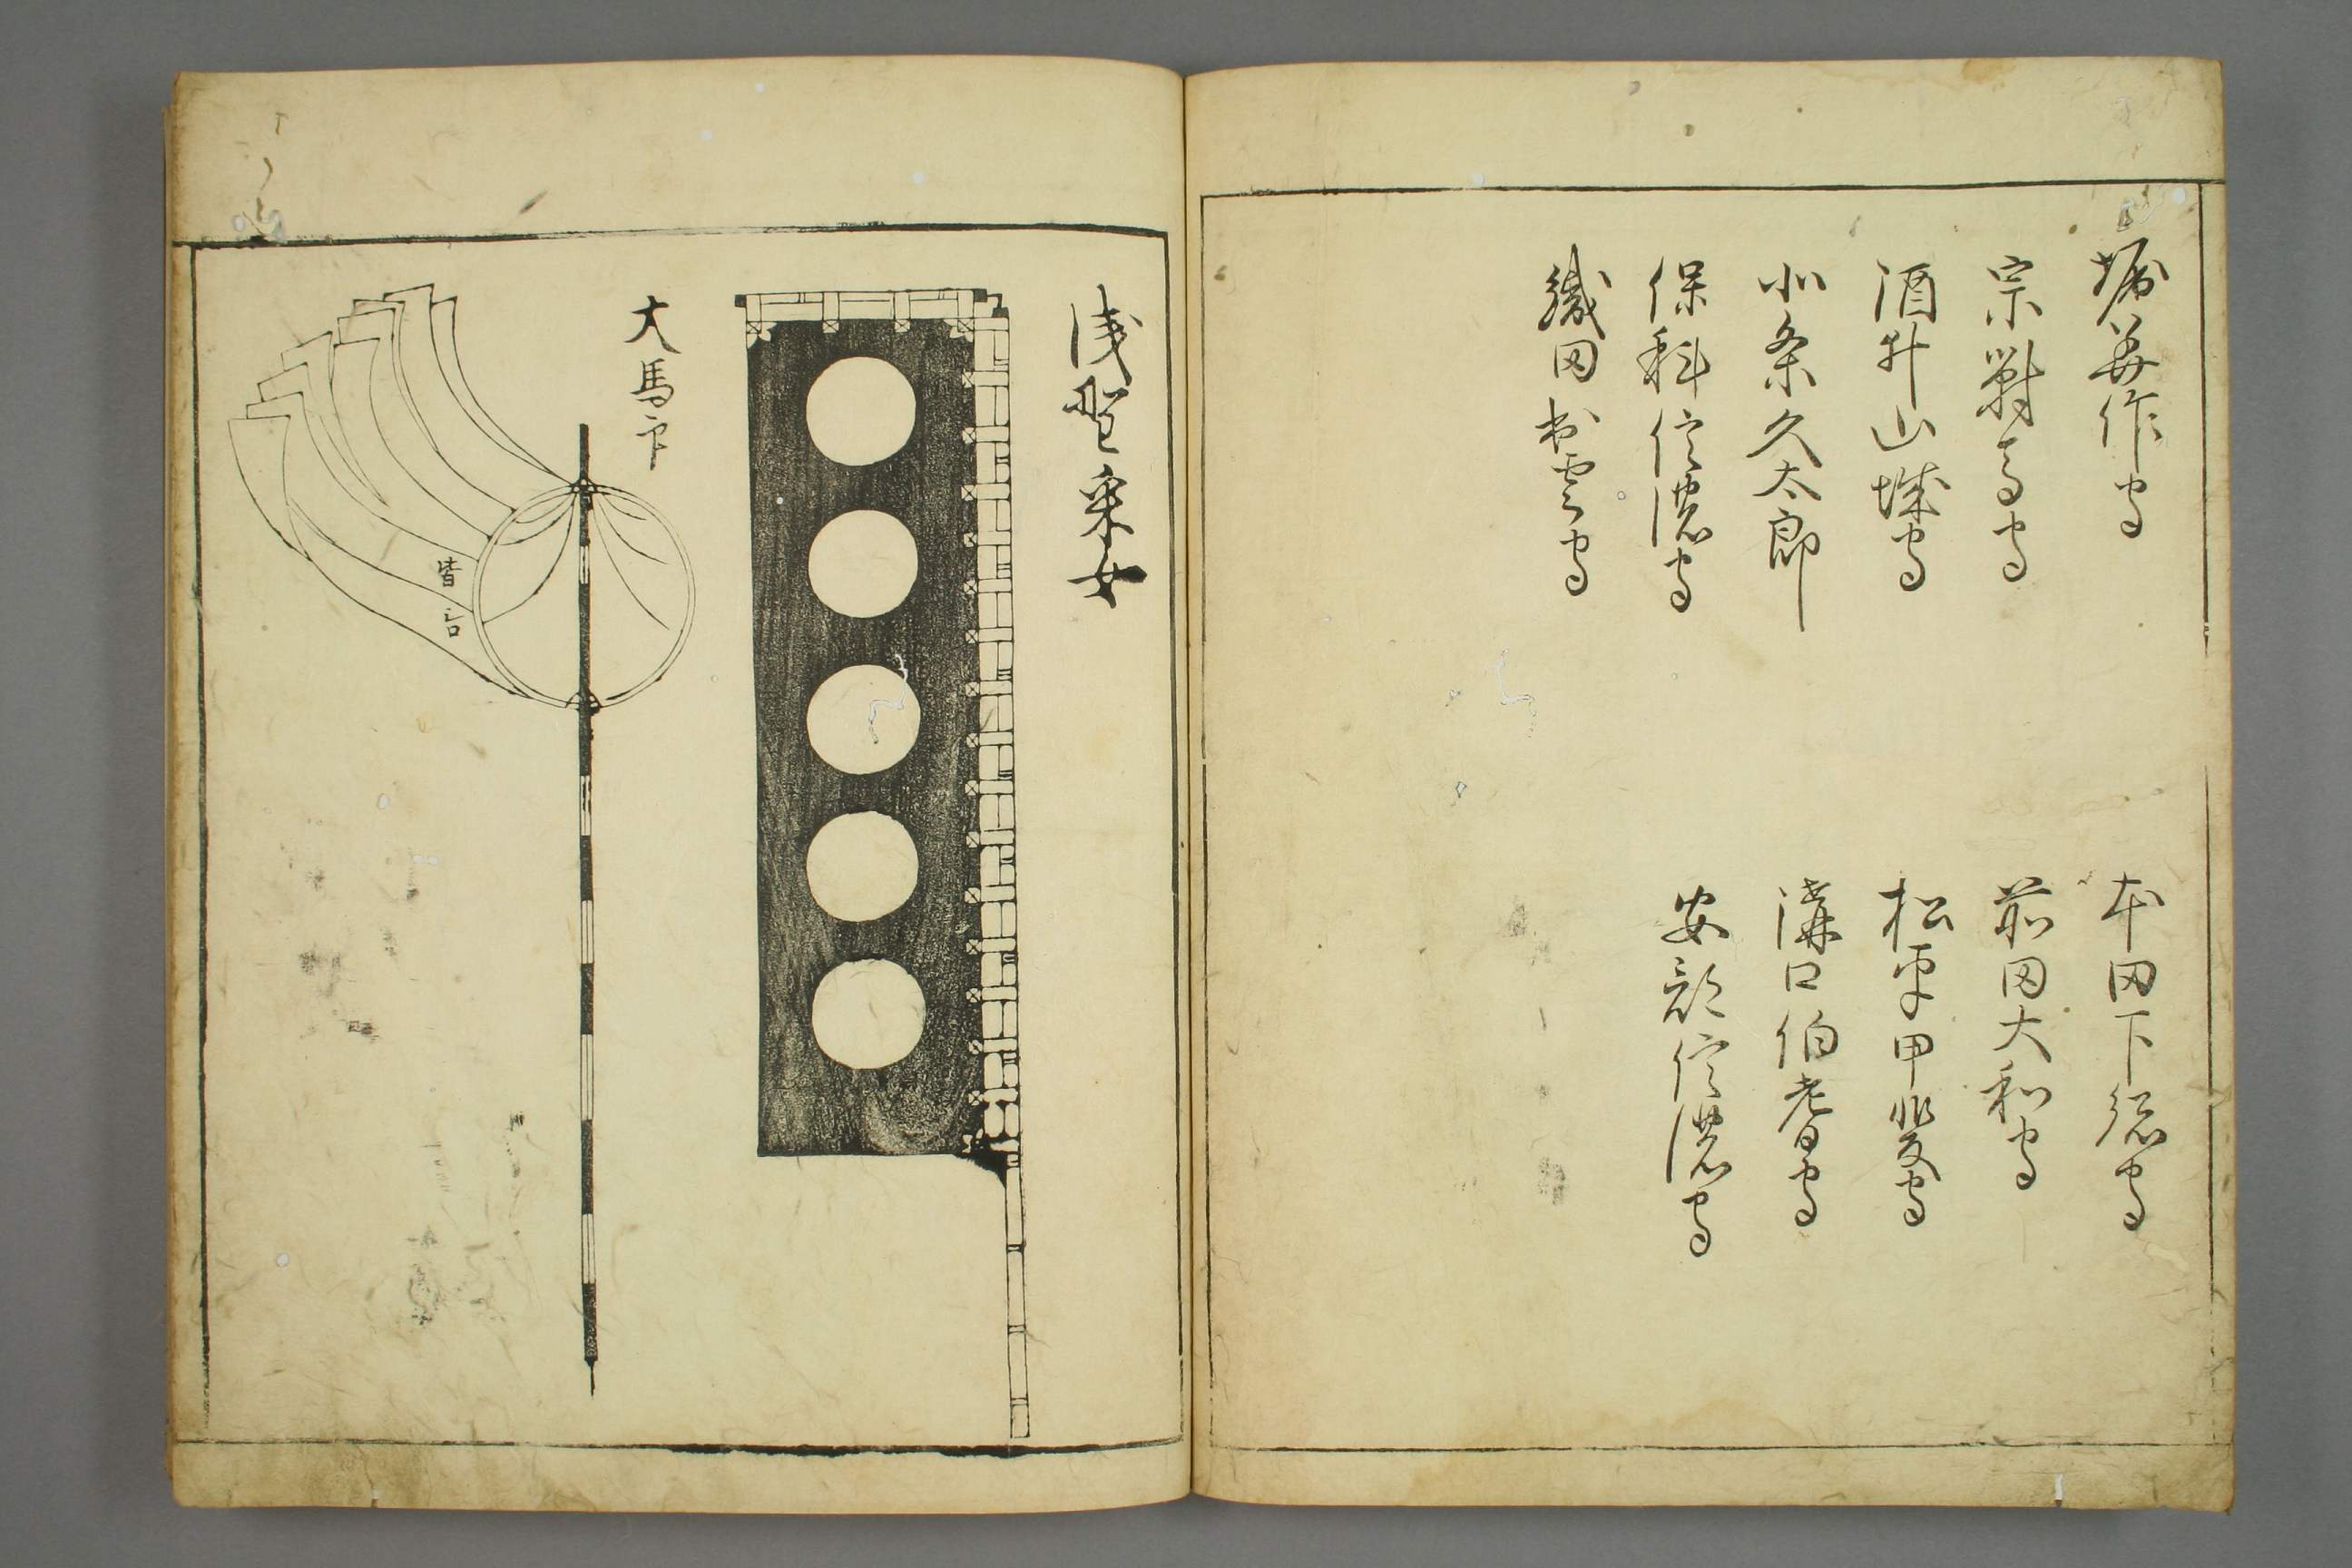 堀美作守
宗對馬守
酒井山城守
北条久太郎
保科信濃守
織田出雲守
本田下総守
前田大和守
松平甲斐守
溝口伯耆守
安部信濃守
浅野采女
大馬印
皆白